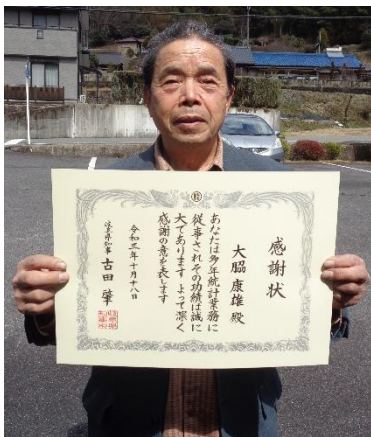 感謝状
大脇康雄 殿
あなたは多年統計業務に
従事されその功績は誠に
大であります よって深く
感謝の意を表します
令和三年十月十八日
岐阜県知事 古田 肇